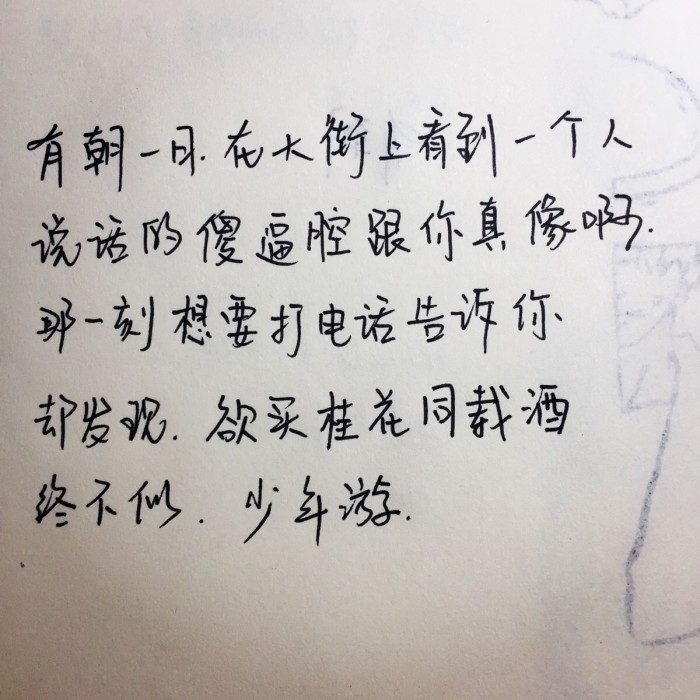 有朝一日.在大街上看到一个人
说话的傻逼腔跟你真像啊.
那一刻想要打电话告诉你
却发现.欲买桂花同载酒
终不似.少年游.